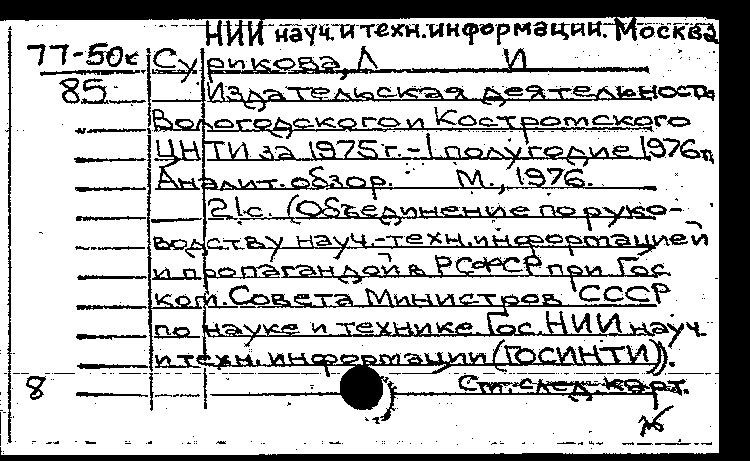 НИИ науч. и техн. информации. Москва
77-50к Сурикова, Л И
85 Издательская деятельность
Вологодского и Костромского
ЦНТИ за 1975 г. - I полугодие 1976 г.
Аналит. обзор. М., 1976.
21 с. (Объединение по руко-
водству науч.-техн. информацией
и пропагандой в РСФСР при Гос
ком. Совета Министров СССР
по науке и технике. Гос. НИИ науч.
и техн. информации (ГОСИНТИ)).
8 См. след. карт.